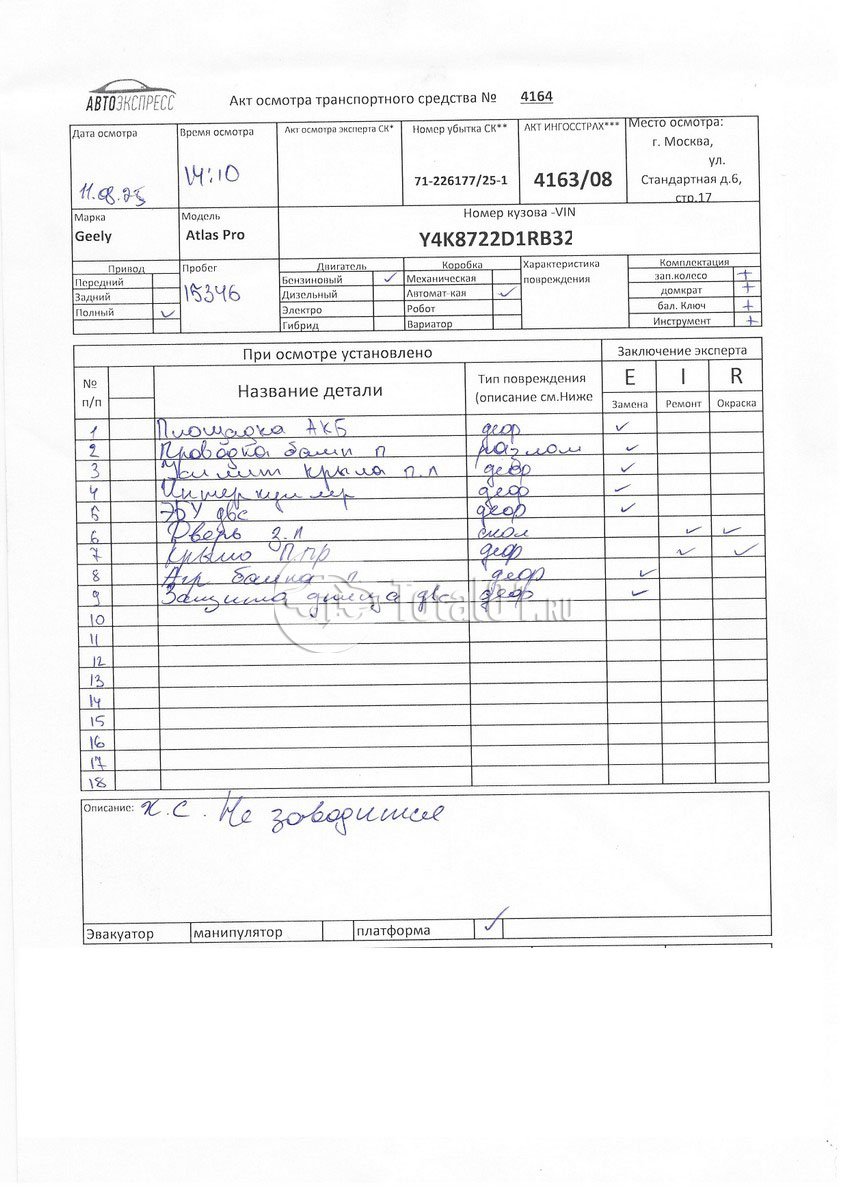 АВТОЭКСПРЕСС
Акт осмотра транспортного средства № 4164
Дата осмотра
11.08.25
Время осмотра
14:10
Акт осмотра эксперта СК*
Номер убытка СК**
71-226177/25-1
АКТ ИНГОССТРАХ***
4163/08
Место осмотра:
г. Москва,
ул.
Стандартная д.6,
стр.17
Марка
Geely
Модель
Atlas Pro
Номер кузова -VIN
Y4K8722D1RB32
Привод
Передний
Задний
Полный ✓
Пробег
15346
Двигатель
Бензиновый ✓
Дизельный
Электро
Гибрид
Коробка
Механическая
Автомат-кая ✓
Робот
Вариатор
Характеристика
повреждения
Комплектация
зап.колесо +
домкрат +
бал. Ключ +
Инструмент +
При осмотре установлено
Заключение эксперта
№
п/п
Название детали
Тип повреждения
(описание см.Ниже
E I R
Замена Ремонт Окраска
1 Площадка АКБ деф ✓
2 Проводка бамп п разлом ✓
3 крыла п.л деф ✓
4 Интеркуллер деф ✓
5 ЭБУ двс деф ✓
6 Дверь з.л скол ✓ ✓
7 Крыло П.ПР деф ✓ ✓
8 п деф ✓
9 Защита днища двс деф ✓
10
11
12
13
14
15
16
17
18
Total01.RU
Описание: х.с. Не заводится
Эвакуатор манипулятор платформа ✓